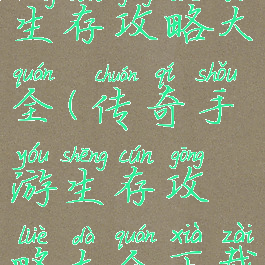 生存攻略大
quán chuán qí shǒu
全(传奇手
yóu shēng cún gōng
游生存攻
lüè dà quán xià zài